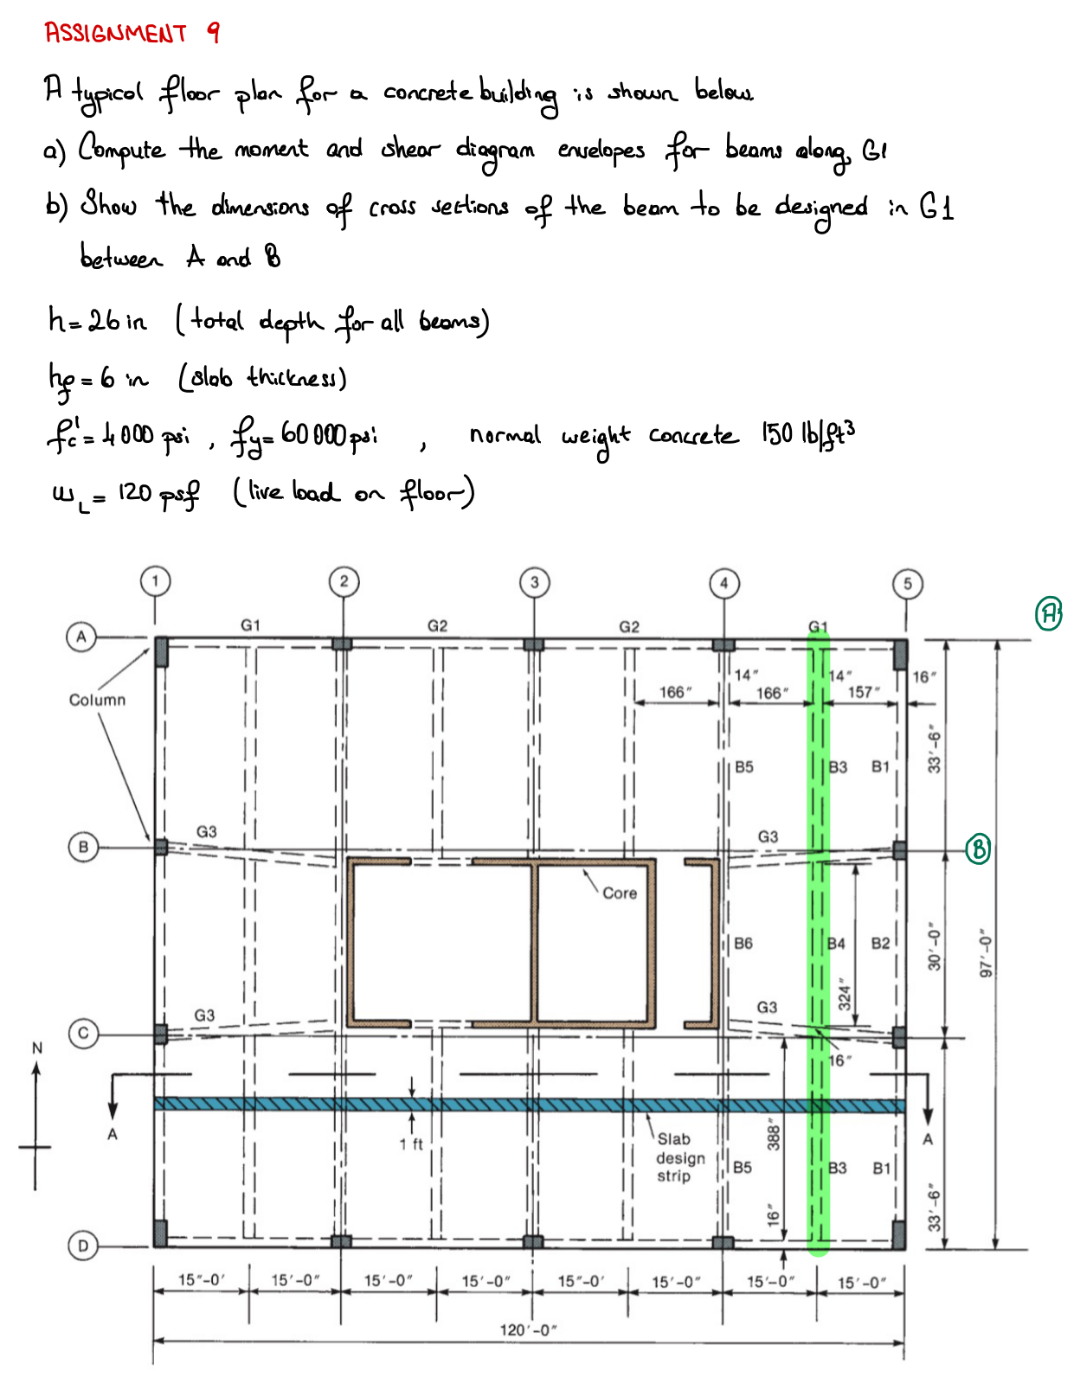 ASSIGNMENT 9
A typical floor plan for a concrete building is shown below
a) Compute the moment and shear diagram envelopes for beams along G1
b) Show the dimensions of cross sections of the beam to be designed in G1
between A and B
h = 26 in (total depth for all beams)
hf = 6 in (slab thickness)
fc' = 4000 psi , fy = 60 000 psi , normal weight concrete 150 lb/ft³
wL = 120 psf (live load on floor)
1 2 3 4 5
A
A
G1 G2 G2 G1
Column
14" 14" 16"
166" 166" 157"
33'-6"
B5 B3 B1
G3 G3
B
B
Core
B6 B4 B2
30'-0"
97'-0"
324"
G3 G3
C
16"
N
A A
1 ft
Slab
design
strip
388"
B5 B3 B1
16"
33'-6"
D
15"-0' 15'-0" 15'-0" 15'-0" 15"-0' 15'-0" 15'-0" 15'-0"
120'-0"